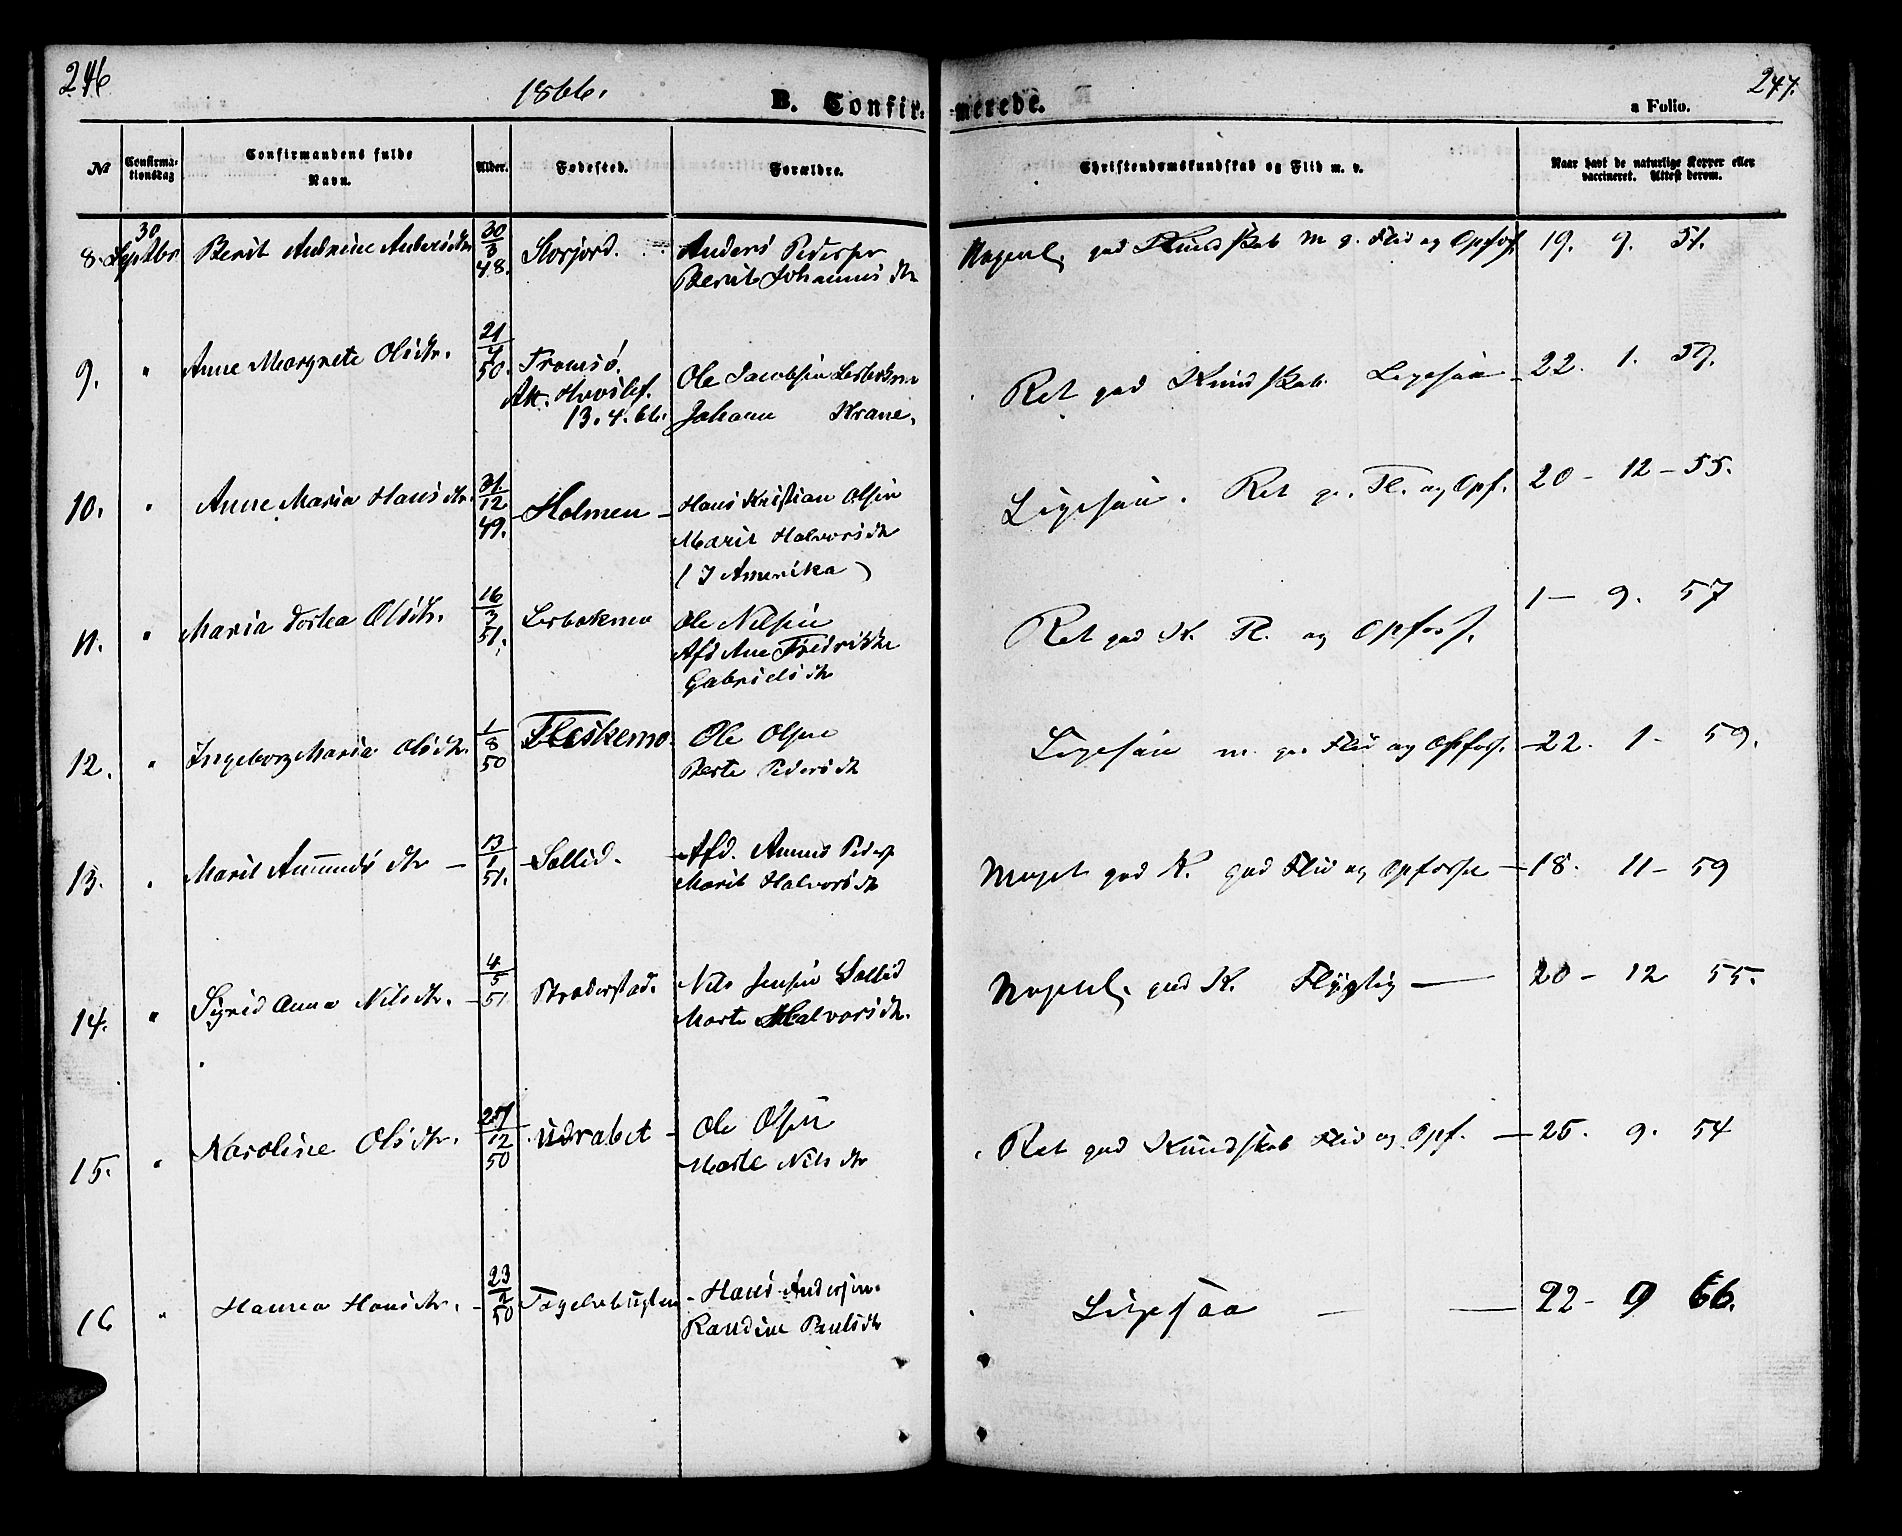 246
1866.
B. Confir-
merede.
a Folio.
247.
No
Confirma-
tionsdag
Confirmandens fulde
Navn.
Alder.
Fødested.
Forældre.
Christendomskundskab og Flid m. v.
Naar havt de naturlige Kopper eller
vaccineret. Attest derom.
30
8. Septbr Berit Andrine Andersdtr 30/3 48. Storjord. Anders Pedersen
Berit Johannesdtr
Meget god Kundskab m g. Flid og Opførs 19. 9. 51.
9. " Anne Margrete Olsdtr. 21/4 50. Tromsö.
Att. Hvoslef.
13. 4. 66.
Ole Jacobsen
Johanna Krane.
Ret god Kundskab. Ligesaa 22. 1. 59.
10. " Anne Maria Hansdtr. 31./12 49. Holmen Hans Kristian Olsen
Marit Halvorsdtr
(I Amerika)
Ligesaa. Ret g. Fl. og Opf. 20 - 12 - 55.
11. " Maria Dortea Olsdtr. 16/3 51. Ole Nilsen
Afd Ane Fredrikke
Gabrielsdtr
Ret god K. Fl. og Opførs. 1 - 9. 57
12. " Ingeborg Maria Olsdtr. 1/8 50 Fleskemo. Ole Olsen
Berte Pedersdtr
Ligesaa m. g. Flid og Opførs. 22. 1 - 59.
13. " Marit Amundsdtr 13/1 51. Sollid. Afd. Amund Peders
Marit Halvorsdtr
Meget god K. god Flid og Opførsel 18. 11 - 59
14. " Sigrid Anna Nilsdtr. 4/5 51 Nils Jensen Sollid
Marte Halvorsdtr.
Meget god K. Flygtig 20 - 12 55.
15. " Karoline Olsdtr. 12 50 Ole Olsen
Marte Nilsdtr
Ret god Kundskab Flid og Opf. 25. 9. 54
16 " Hanna Hansdtr. 23 50 Hans Andersen.
Randine Paulsdtr
Ligesaa 22 - 9 66.